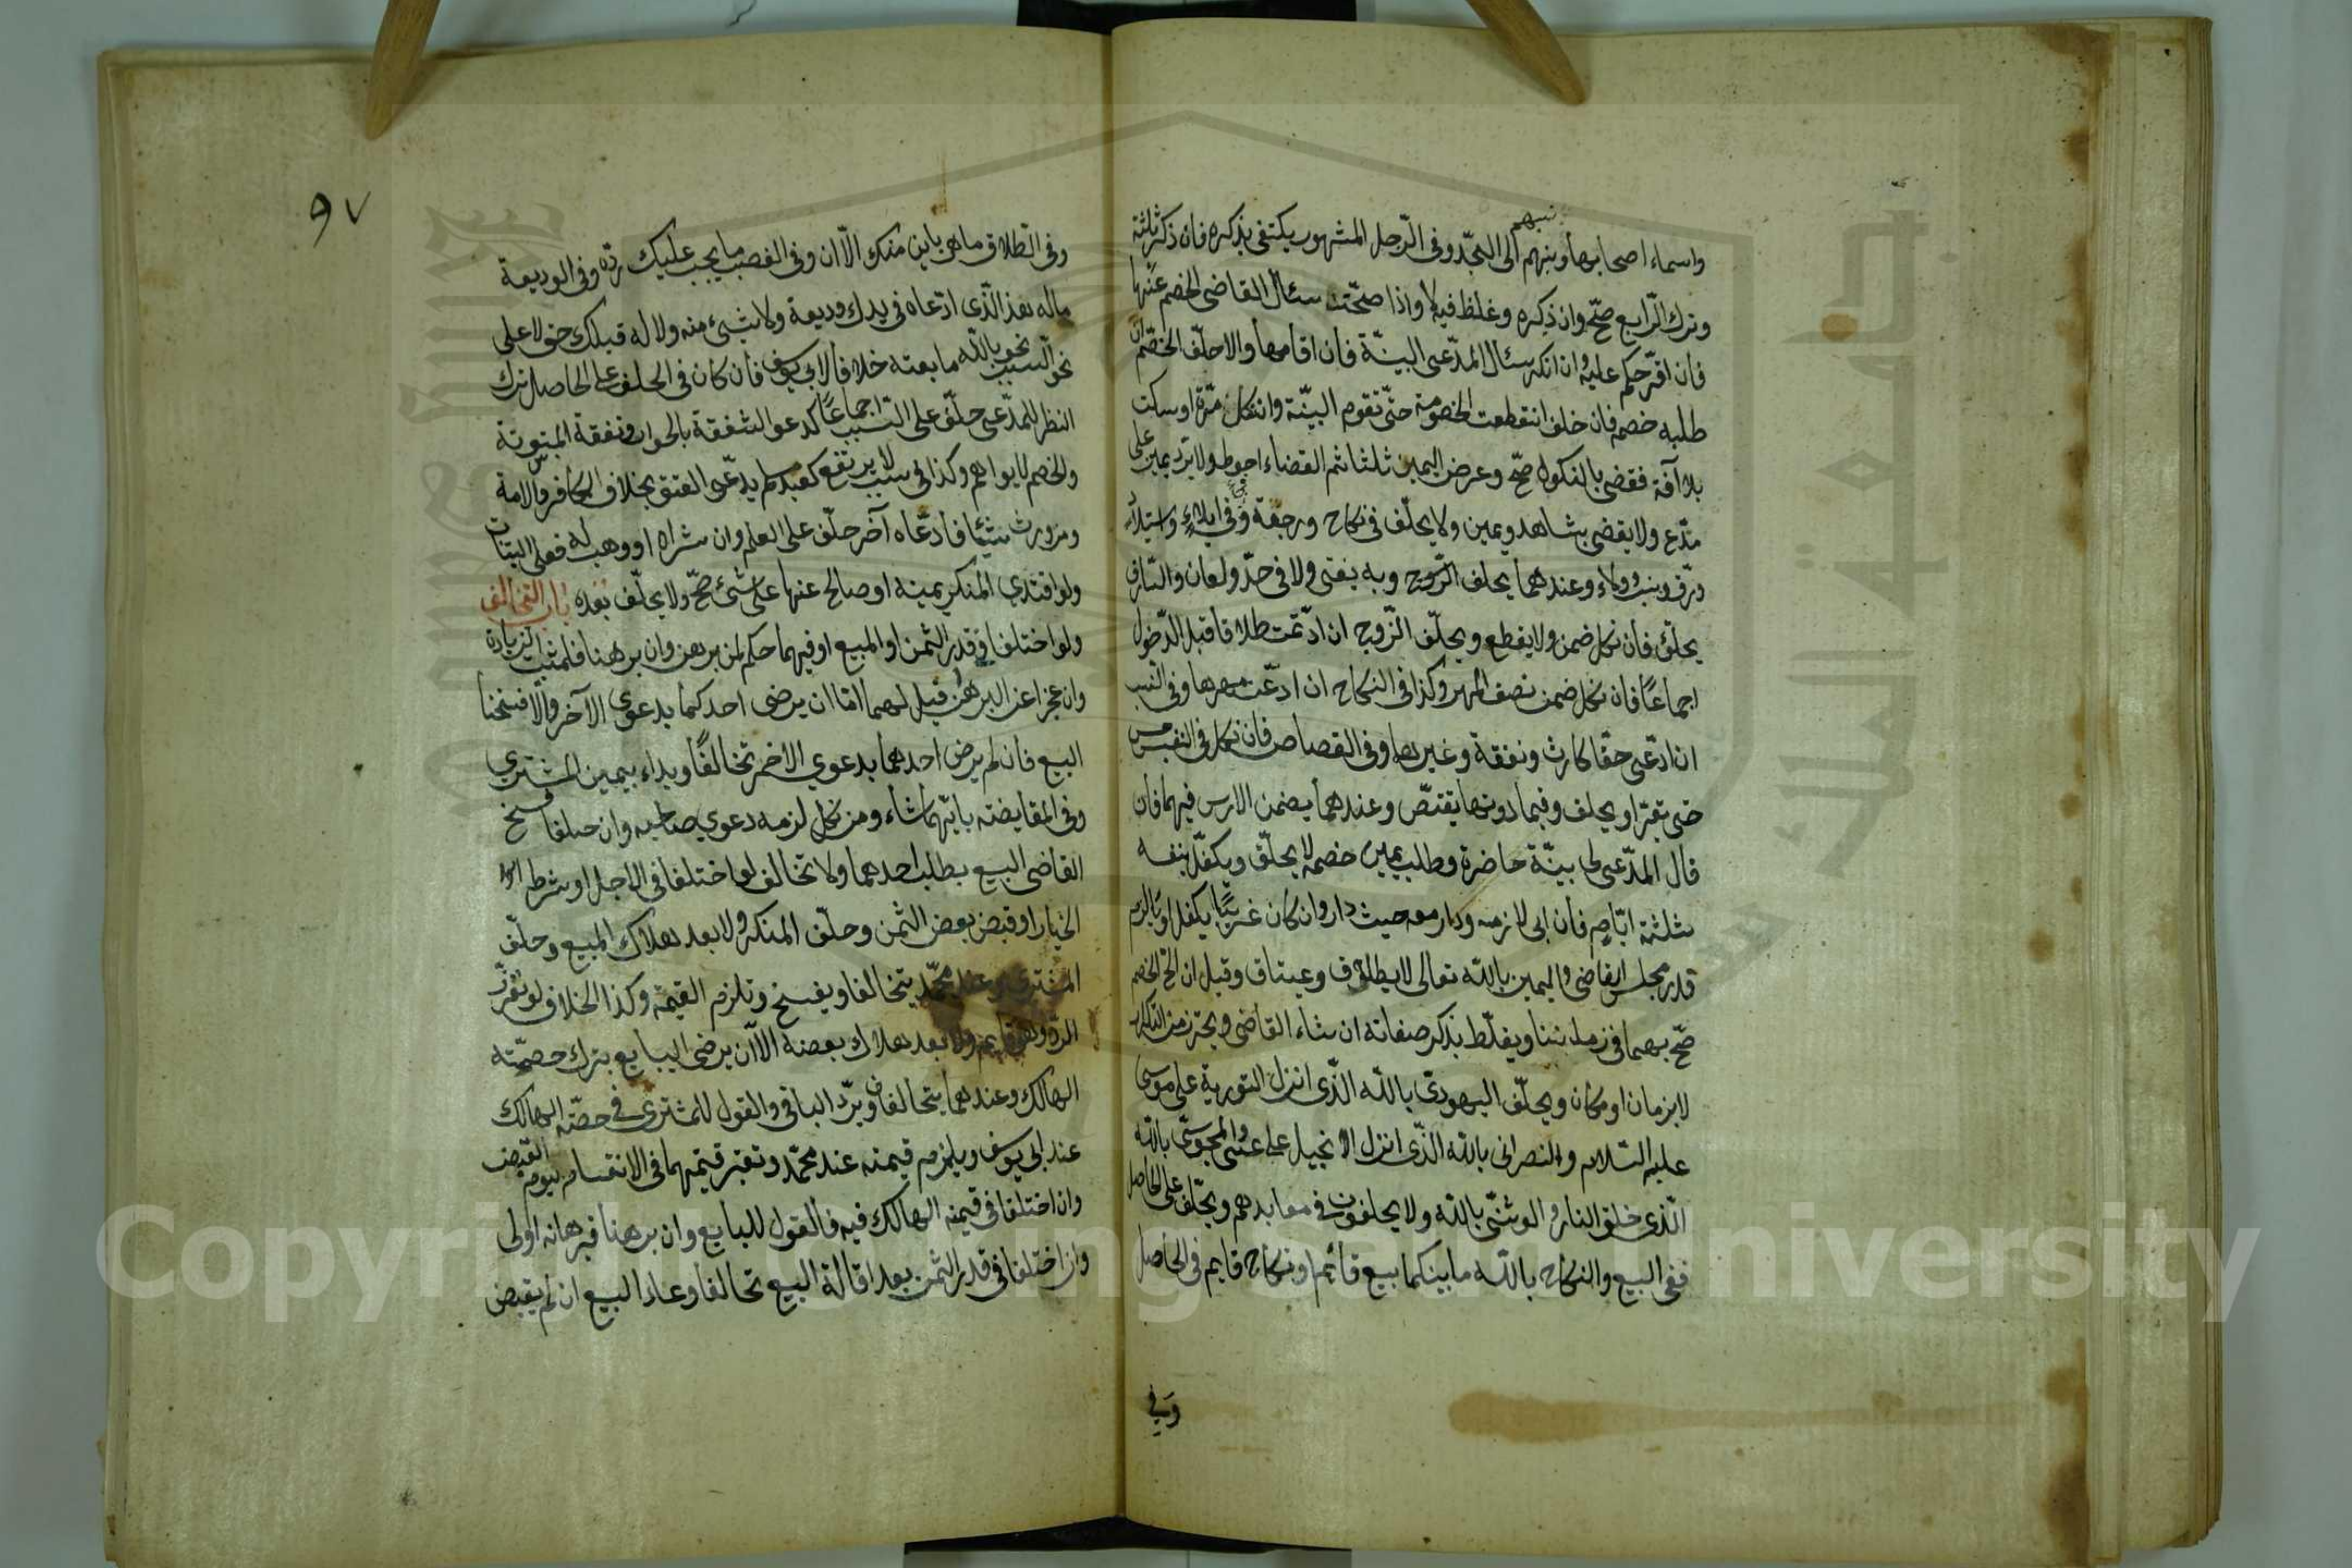 واسماء اصحابها ونبهم الى الجد وفى الرجل المشهور يكتفى بذكره فان ذكر ثلثة
نبهم
وترك الرابع صح وان ذكره وغلط فيه لا واذا صحت سئال القاضى الخصم عنها
فان اقر حكم عليه وان انكر سئال المدعى البينة فان اقامها والا حلف الخصم ان
طلبه خصمه فان خلف انتقطعت الخصومة حتى تقوم البينة وان نكل مرة او سكت
بلا آفة فقضى بالنكول صح وعرض اليمين ثلثا ثم القضاء احوط ولا يرد يمين على
مدع ولا يقضى بشاهد ويمين ولا يحلف فى نكاح ورجعة وفى ايلاء واستيلاد
ورق ونسب وولاء وعندهما يحلف الزوج وبه يفتى ولا فى حد ولعان والسارق
يحلف فان نكل ضمن ولا يقطع ويحلف الزوج ان ادعت طلاقا قبل الدخول
اجماعا فان نكل ضمن نصف المهر وكذا فى النكاح ان ادعت مهرها وفى النسب
ان ادعى حقا كارث ونفقة وغيرها وفى القصاص فان نكل فى النفس حبس
حتى يقر او يحلف وفيما دونها يقتص وعندهما يضمن الارس فيهما فان
قال المدعى لى بينة حاضرة وطلب يمين خصمه لا يحلف ويكفل بنفسه
ثلثة ايام فان ابى لازمه ودار معه حيث دار وان كان غريبا يكفل او يلازم
قدر مجلس القاضى واليمين بالله تعالى لا بطلاق وعتاق وقيل ان الح الخصم
صح بهما فى زماننا ويغلظ بذكر صفاته ان شاء القاضى ويحترز من التكرار
لا بزمان او مكان ويحلف اليهودى بالله الذى انزل التورية على موسى
عليه السلام والنصرانى بالله الذى انزل الانجيل على عيسى والمجوسى بالله
الذى خلق النار والوثنى بالله ولا يحلفون فى معابدهم ويحلف على الحاصل
ففى البيع والنكاح بالله ما بينكما بيع قائم او نكاح قايم فى الحاصل
وفى
٩٧
وفى الطلاق ما هى باين منك الآن وفى الغصب ما يجب عليك رده وفى الوديعة
ماله هذا الذى ادعاه فى يدك وديعة ولا شيئ منه ولا له قبلك حق لا على
السبب نحو بالله ما بعته خلافا لابى يوسف فان كان فى الحلف على الحاصل ترك
النظر للمدعى حلف على السبب اجماعا كدعوى الشفعة بالجوار ونفقة المبتوتة
والخصم لا يراهم وكذا فى سبب لا يرتفع كعبد مسلم يدعى العتق بخلاف الكافر والامة
ومن ورث شيئا فادعاه آخر حلف على العلم وان شراه او وهب له فعلى البتات
ولو افتدى المنكر يمينه او صالح عنها على شئ صح ولا يحلف بعده باب التخالف
ولو اختلفا فى قدر الثمن او المبيع او فيهما حكم لمن برهن وان برهنا فلمثبت الزيادة
وان عجزا عن البرهان قيل لهما اما ان يرضى احدكما بدعوى الآخر والا فسخنا
البيع فان لم يرض احدهما بدعوى الاخر تخالفا ويداء بيمين المشترى
وفى المقايضة بايهما شاء ومن نكل لزمه دعوى صاحبه وان حلفا فسخ
القاضى البيع بطلب احدهما ولا تخالف لو اختلفا فى الاجل او شرط
الخيار او قبض بعض الثمن وحلف المنكر ولا بعد هلاك المبيع وحلف
المشترى وعند محمد يتخالفا ويفسخ وتلزم القيمة وكذا الخلاف لو تعذر
الرد وهو قايم ولا بعد هلاك بعضه الا ان يرضى البايع بترك حصته
الهالك وعندهما يتحالفان ويرد الباقى والقول للمشترى فى حصة الهالك
عند ابى يوسف ويلزم قيمته عند محمد وتعتبر قيمتهما فى الانقسام يوم القبض
وان اختلفا فى قيمة الهالك فيه فالقول للبايع وان برهنا فبرهانه اولى
وان اختلفا فى قدر الثمن بعد اقالة البيع تحالفا وعاد البيع ان لم يقبض
Copyright © King Saud University